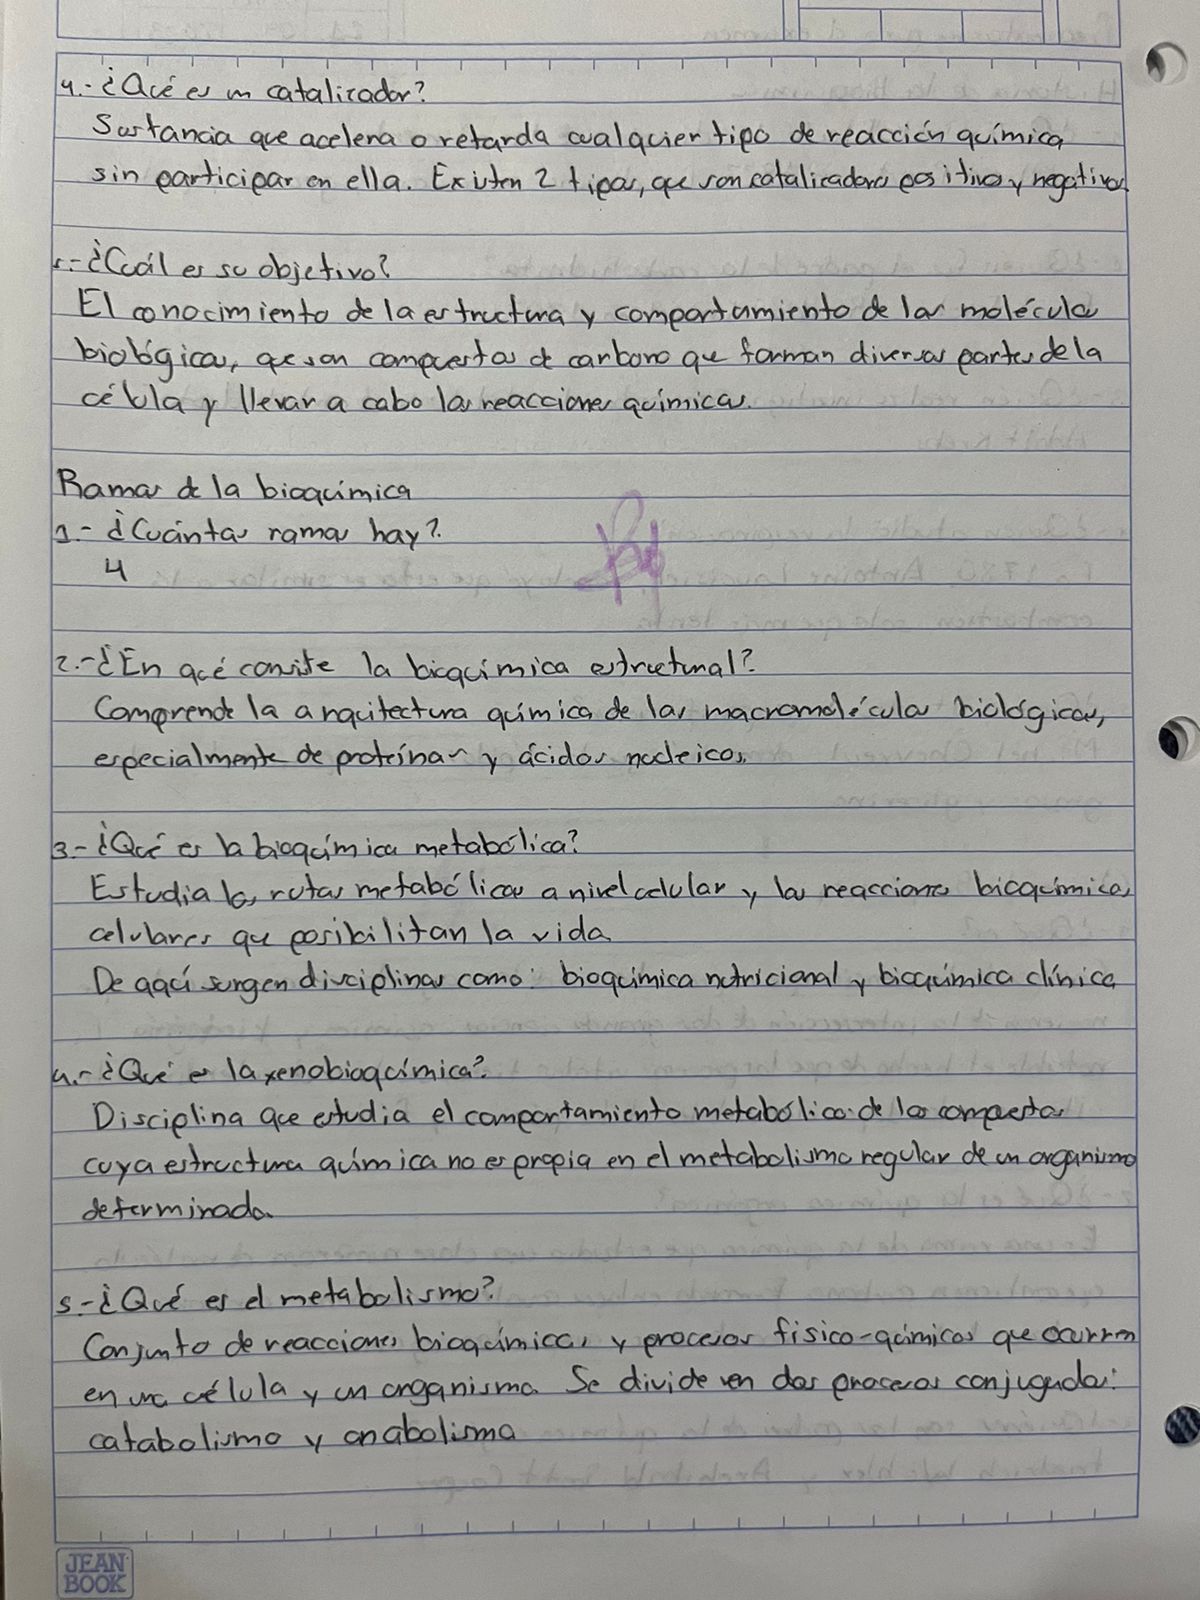 4.- ¿Qué es un catalizador?
Sustancia que acelera o retarda cualquier tipo de reacción química
sin participar en ella. Existen 2 tipos, que son catalizadores positivos y negativos.
5.- ¿Cuál es su objetivo?
El conocimiento de la estructura y comportamiento de las moléculas
biológicas, que son compuestos de carbono que forman diversas partes de la
célula y llevar a cabo las reacciones químicas.
Ramas de la bioquímica
1.- ¿Cuántas ramas hay?
4
2.- ¿En qué consiste la bioquímica estructural?
Comprende la arquitectura química de las macromoléculas biológicas,
especialmente de proteínas y ácidos nucleicos.
3.- ¿Qué es la bioquímica metabólica?
Estudia las rutas metabólicas a nivel celular y las reacciones bioquímicas
celulares que posibilitan la vida
De aquí surgen disciplinas como: bioquímica nutricional y bioquímica clínica
4.- ¿Qué es la xenobioquímica?
Disciplina que estudia el comportamiento metabólico de los compuestos
cuya estructura química no es propia en el metabolismo regular de un organismo
determinado.
5.- ¿Qué es el metabolismo?
Conjunto de reacciones bioquímicas y procesos físico-químicos que ocurren
en una célula y un organismo. Se divide en dos procesos conjugados:
catabolismo y anabolismo
JEAN
BOOK